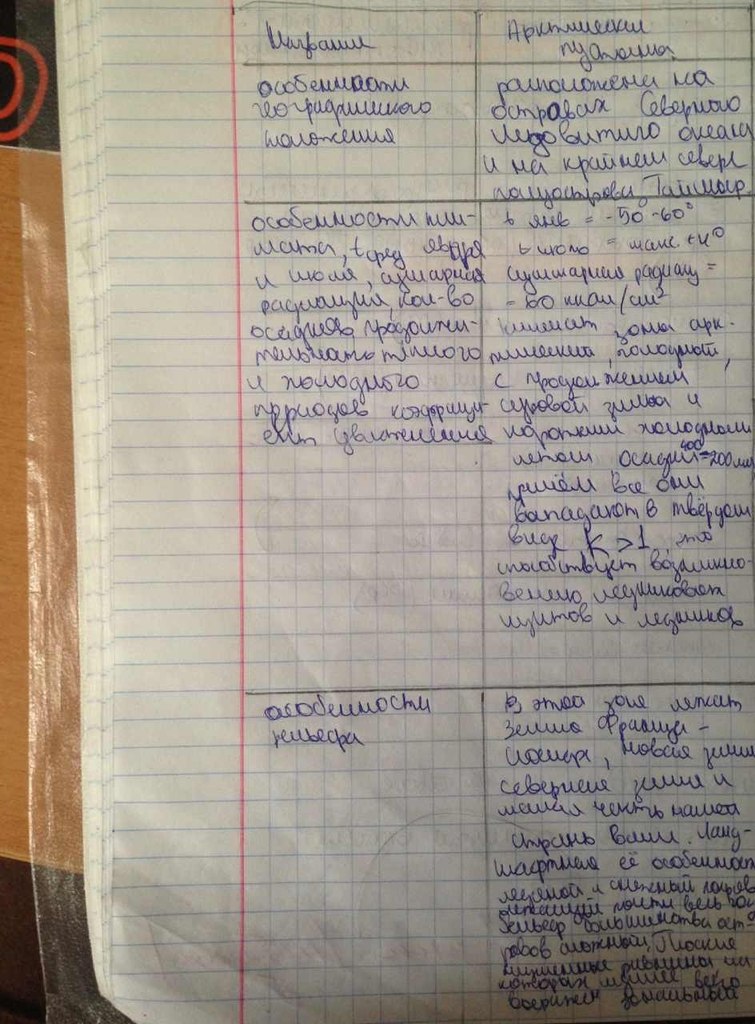 Название
Арктические
пустыни
особенности
географического
положения
расположены на
островах Северного
Ледовитого океана
и на крайнем севере
полуострова Таймыр.
особенности кли-
мата, t сред января
и июля, суммарная
радиация, кол-во
осадков, продолжи-
тельность тёплого
и холодного
периодов коэффици-
ент увлажнения
t янв = -50°-60°
t июль = макс. +4°
суммарная радиац =
- 60 ккал/см²
климат зоны арк-
тический, холодный,
с продолжением
суровой зимы и
коротким холодным
летом, осадки 400 - 200 мм
причём все они
выпадают в твёрдом
виде K >1 это
способствует возникно-
вению ледниковых
щитов и ледников
особенности
рельефа
В этой зоне лежат
Земля Франца-
Иосифа, Новая земля
северная земля и
малая часть нашей
страны. Ланд-
шафтная её особенность
ледяной и снежный покров
лежащий почти весь год
Рельеф большинства ост-
ровов сложный. Плоские
низменные равнины на
которых лучше всего
выражен зональный